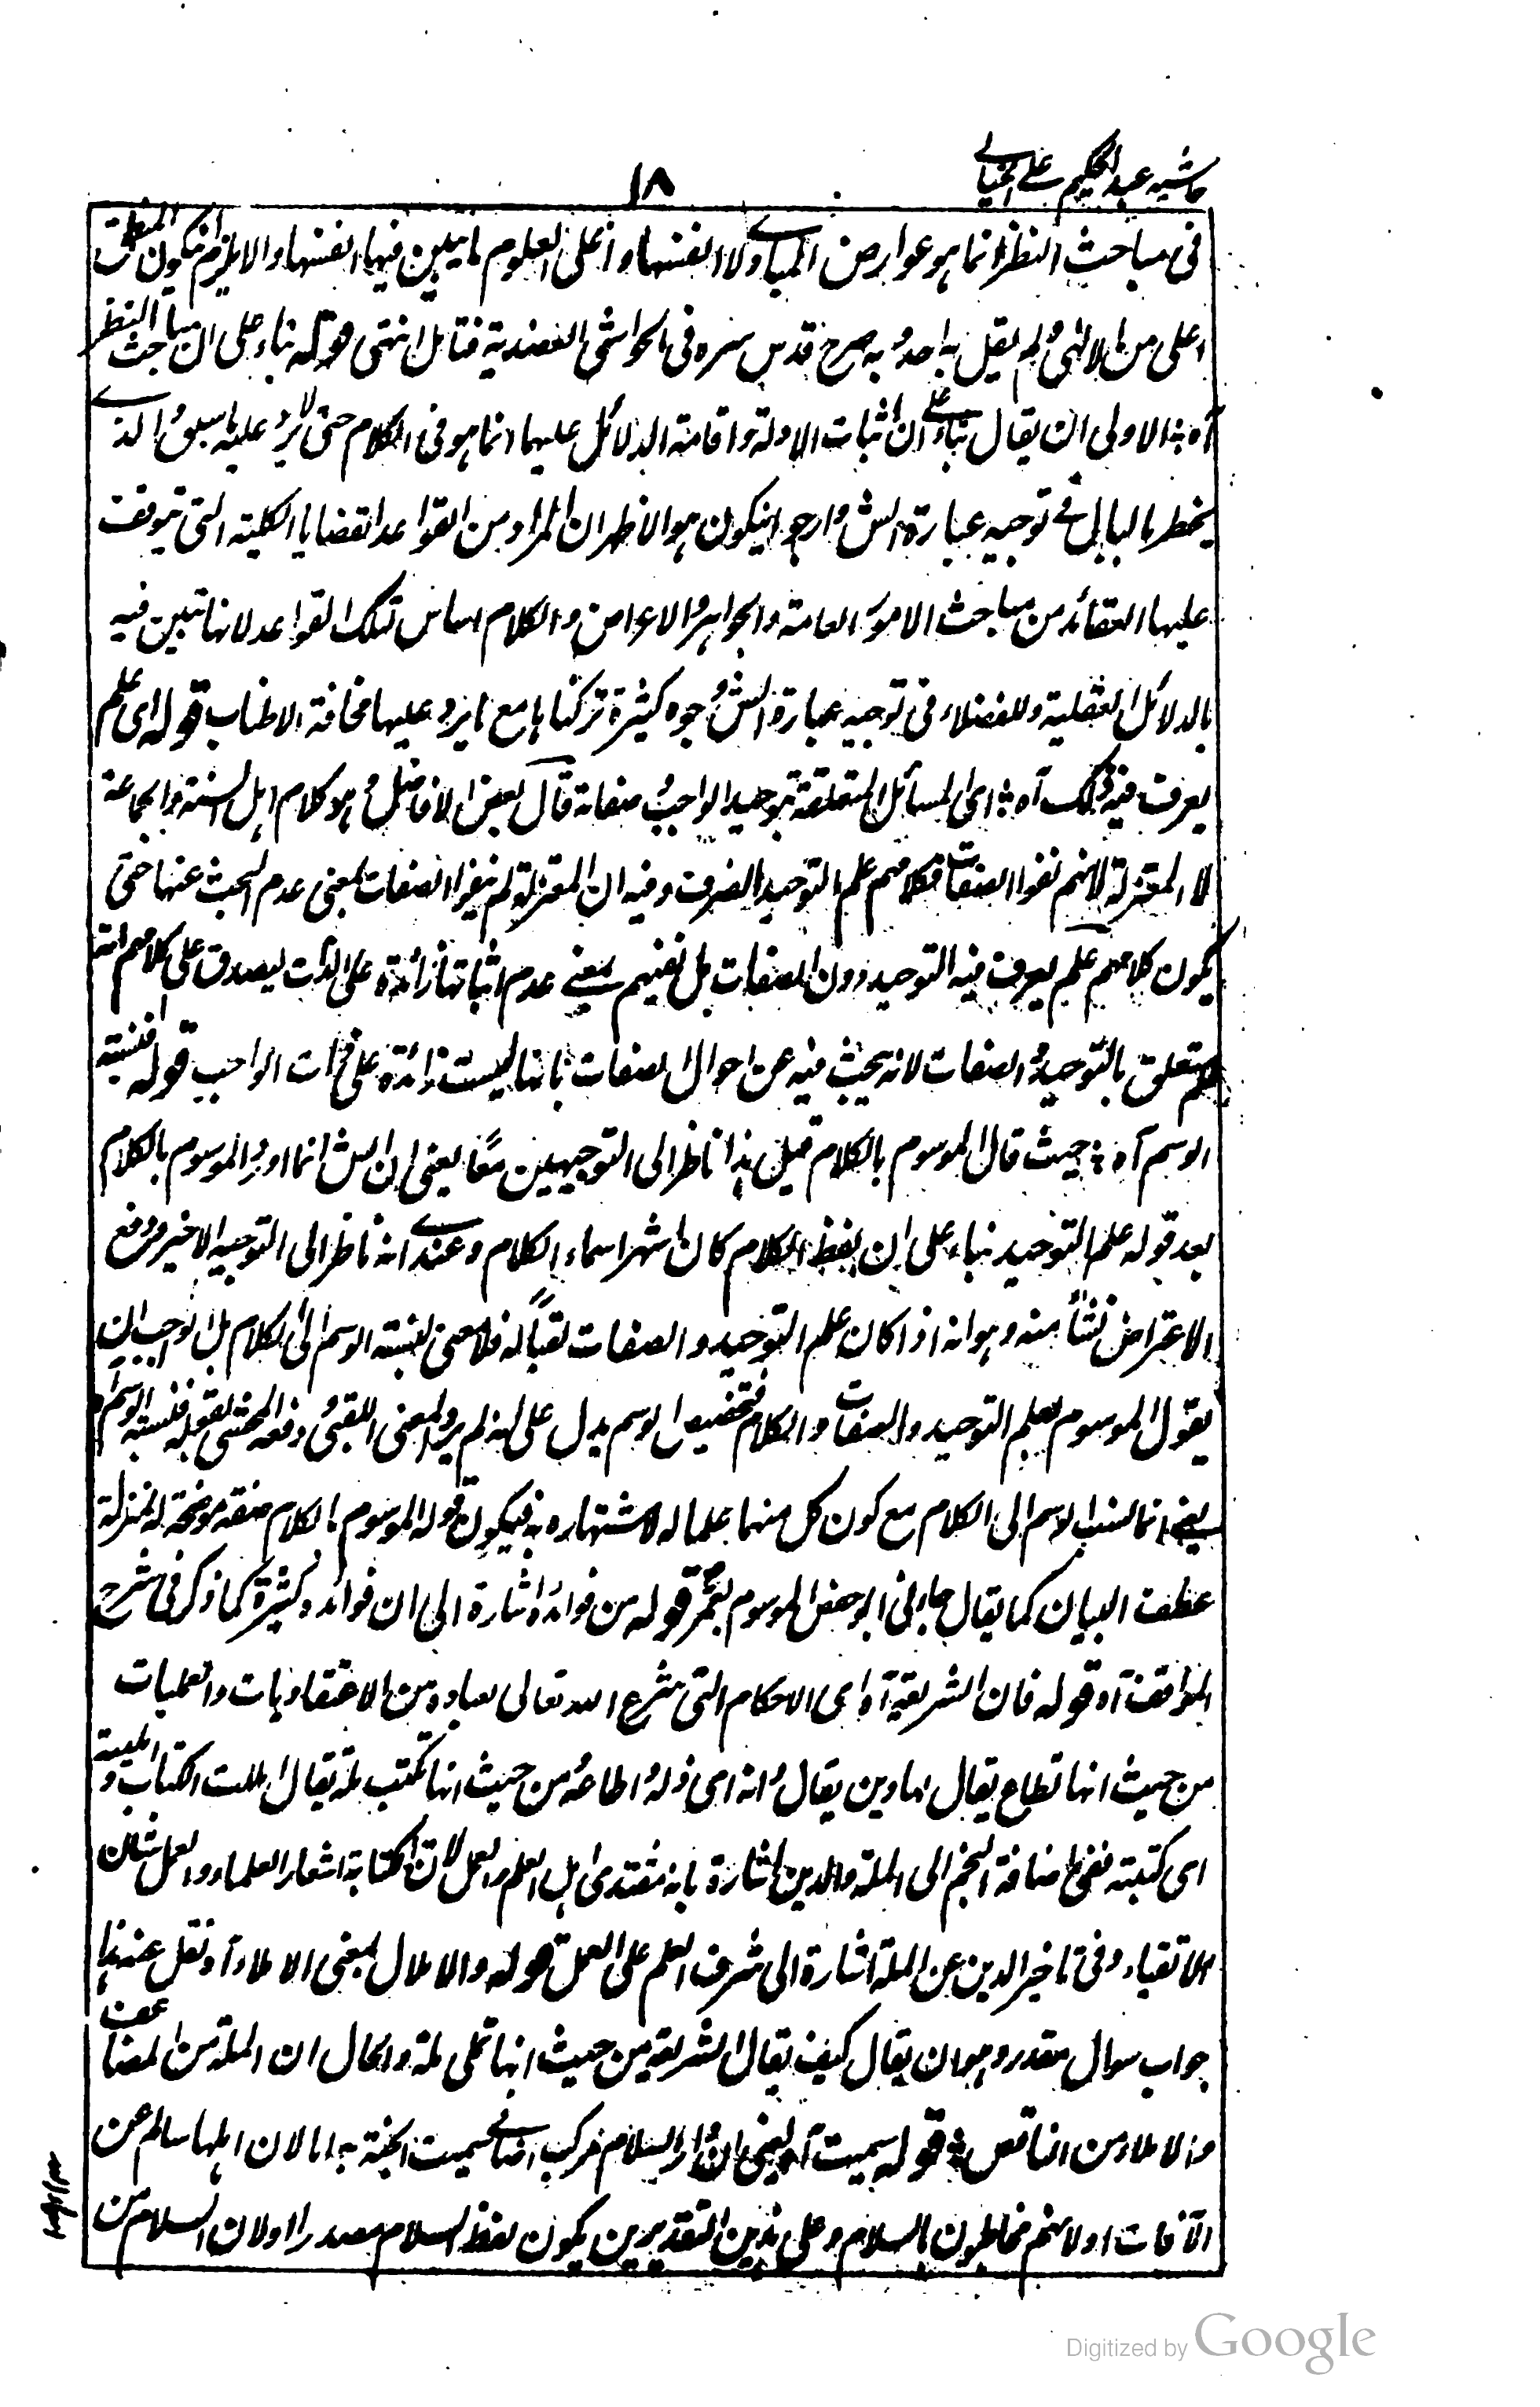 حاشيه عبد الحكيم على الخيالى
١٨
فى مباحث النظر انما هو عوارض المبادى ولا انفسها و اعلى العلوم ما يبين فيها انفسها والا يلزم ان يكون المنطق
اعلى من الالهى ولم يقل به احد و به صرح قدس سره فى الحواشى العضدية فتامل انتهى قوله بناء على ان مباحث النظر
آه ؛ الاولى ان يقال بناء على ان اثبات الادلة و اقامة الدلائل عليها انما هو فى الكلام حتى لا يرد عليه ما سبق و الذى
يخطر بالبال فى توجيه عبارة الش و ارجو ان يكون هو الاظهر ان المراد من القواعد القضايا الكلية التى تتوقف
عليها العقائد من مباحث الامور العامة و الجواهر و الاعراض و الكلام اساس تلك القواعد لانها تبين فيه
بالدلائل العقلية و للفضلاء فى توجيه عبارة الش وجوه كثيرة تركناها مع ما يرد عليها مخافة الاطناب قوله اى علم
يعرف فيه ذلك آه ؛ اى المسائل المتعلقة بتوحيد الواجب و صفاته قال بعض الافاضل و هو كلام اهل السنة و الجماعة
لا المعتزلة لانهم نفوا الصفات فكلامهم علم التوحيد الصرف و فيه ان المعتزلة لم ينفوا الصفات بمعنى عدم البحث عنها حتى
يكون كلامهم علم يعرف فيه التوحيد دون الصفات بل نفيهم بمعنى عدم اثباتها زائدة على الذات ليصدق على كلامهم انه
علم متعلق بالتوحيد و الصفات لانه يبحث فيه عن احوال الصفات بانها ليست زائدة على ذات الواجب قوله فنسبة
الوسم آه ؛ حيث قال الموسوم بالكلام قيل هذا ناظر الى التوجيهين معًا يعنى ان الش انما اورد الموسوم بالكلام
بعد قوله علم التوحيد بناء على ان لفظ الكلام كان اشهر اسماء الكلام و عندى انه ناظر الى التوجيه الاخير و دفع
الاعتراض نشأ منه و هو انه اذا كان علم التوحيد و الصفات لقبًا له فلا معنى لنسبة الوسم الى الكلام بل الواجب ان
يقول الموسوم بعلم التوحيد و الصفات و الكلام فتخصيص الوسم يدل على انه لم يرد المعنى اللقبى و دفعه المحشى بقوله فنسبة الوسم آه
يعنى انما نسب الاسم الى الكلام مع كون كل منهما علما له لاشتهاره به فيكون قوله الموسوم بالكلام صفة موضحة له بمنزلة
عطف البيان كما يقال جاءنى ابو حفص الموسوم بعمر قوله من فوائده اشارة الى ان فوائده كثيرة كما ذكر فى شرح
المواقف آه قوله فان الشريعة آه اى الاحكام التى شرع الله تعالى لعباده من الاعتقاديات و العمليات
من حيث انها تطاع يقال لها دين يقال دانه اى ذله و اطاعه و من حيث انها تكتب ملة يقال امللت الكتاب و امليته
اى كتبته ففى اضافة النجم الى الملة و الدين اشارة بانه مقتدى اهل العلم و العمل لان الكتابة اشعار العلماء و العمل شان
الاتقياء و فى تاخير الدين عن الملة اشارة الى شرف العلم على العمل قوله و الاملال بمعنى الاملاء آه نقل عنه هذا
جواب سوال مقدر و هو ان يقال كيف يقال الشريعة من حيث انها تملى ملة و الحال ان الملة من المضاعف
و الاملاء من الناقص ؛ قوله سميت آه يعنى ان دار السلام مركب اضافى سميت الجنة به اما لان اهلها سالم عن
الآفات او لانهم مخاطبون بالسلام و على هذين التقديرين يكون لفظ السلام مصدرا او لان السلام من